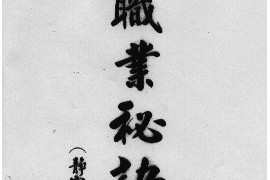 職業秘訣
(靜